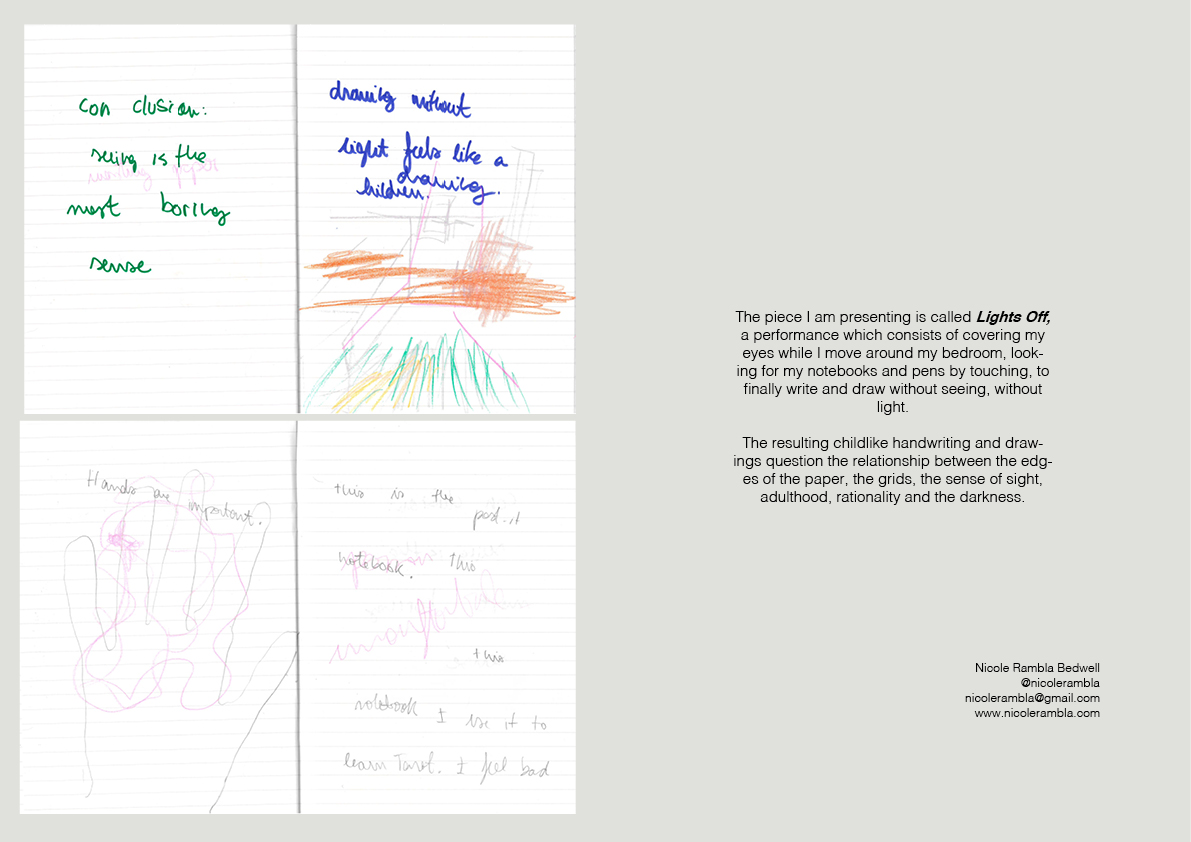 con clusion:
seeing is the
most boring
sense
drawing without
light feels like a
drawing.
hildren.
Hands are
important.
this is the
post.it
notebook. this
this
notebook I use it to
learn Tarot. I feel bad
The piece I am presenting is called Lights Off,
a performance which consists of covering my
eyes while I move around my bedroom, look-
ing for my notebooks and pens by touching, to
finally write and draw without seeing, without
light.
The resulting childlike handwriting and draw-
ings question the relationship between the edg-
es of the paper, the grids, the sense of sight,
adulthood, rationality and the darkness.
Nicole Rambla Bedwell
@nicolerambla
nicolerambla@gmail.com
www.nicolerambla.com